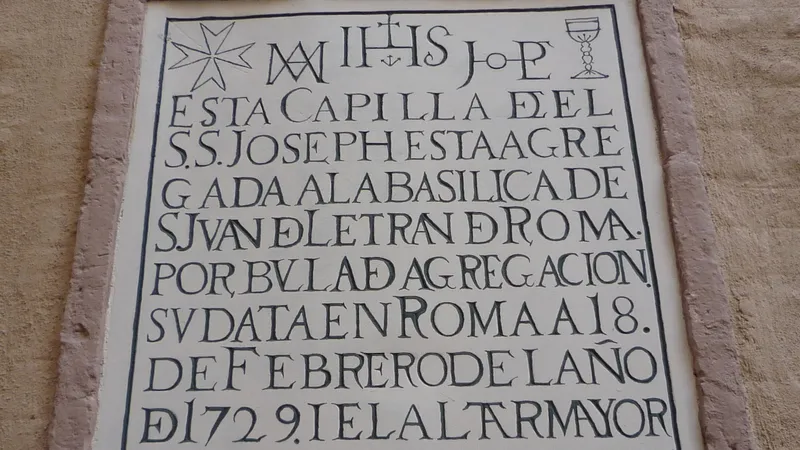 MA IHS JOPE
ESTA CAPILLA DEEL
S.S. JOSEPH ESTA AGRE
GADA A LA BASILICA DE
S JVAN DE LETRAN DE ROMA.
POR BVLA DE AGREGACION.
SV DATA EN ROMA A 18.
DE FEBRERO DEL AÑO
DE 1729. I EL ALTAR MAYOR